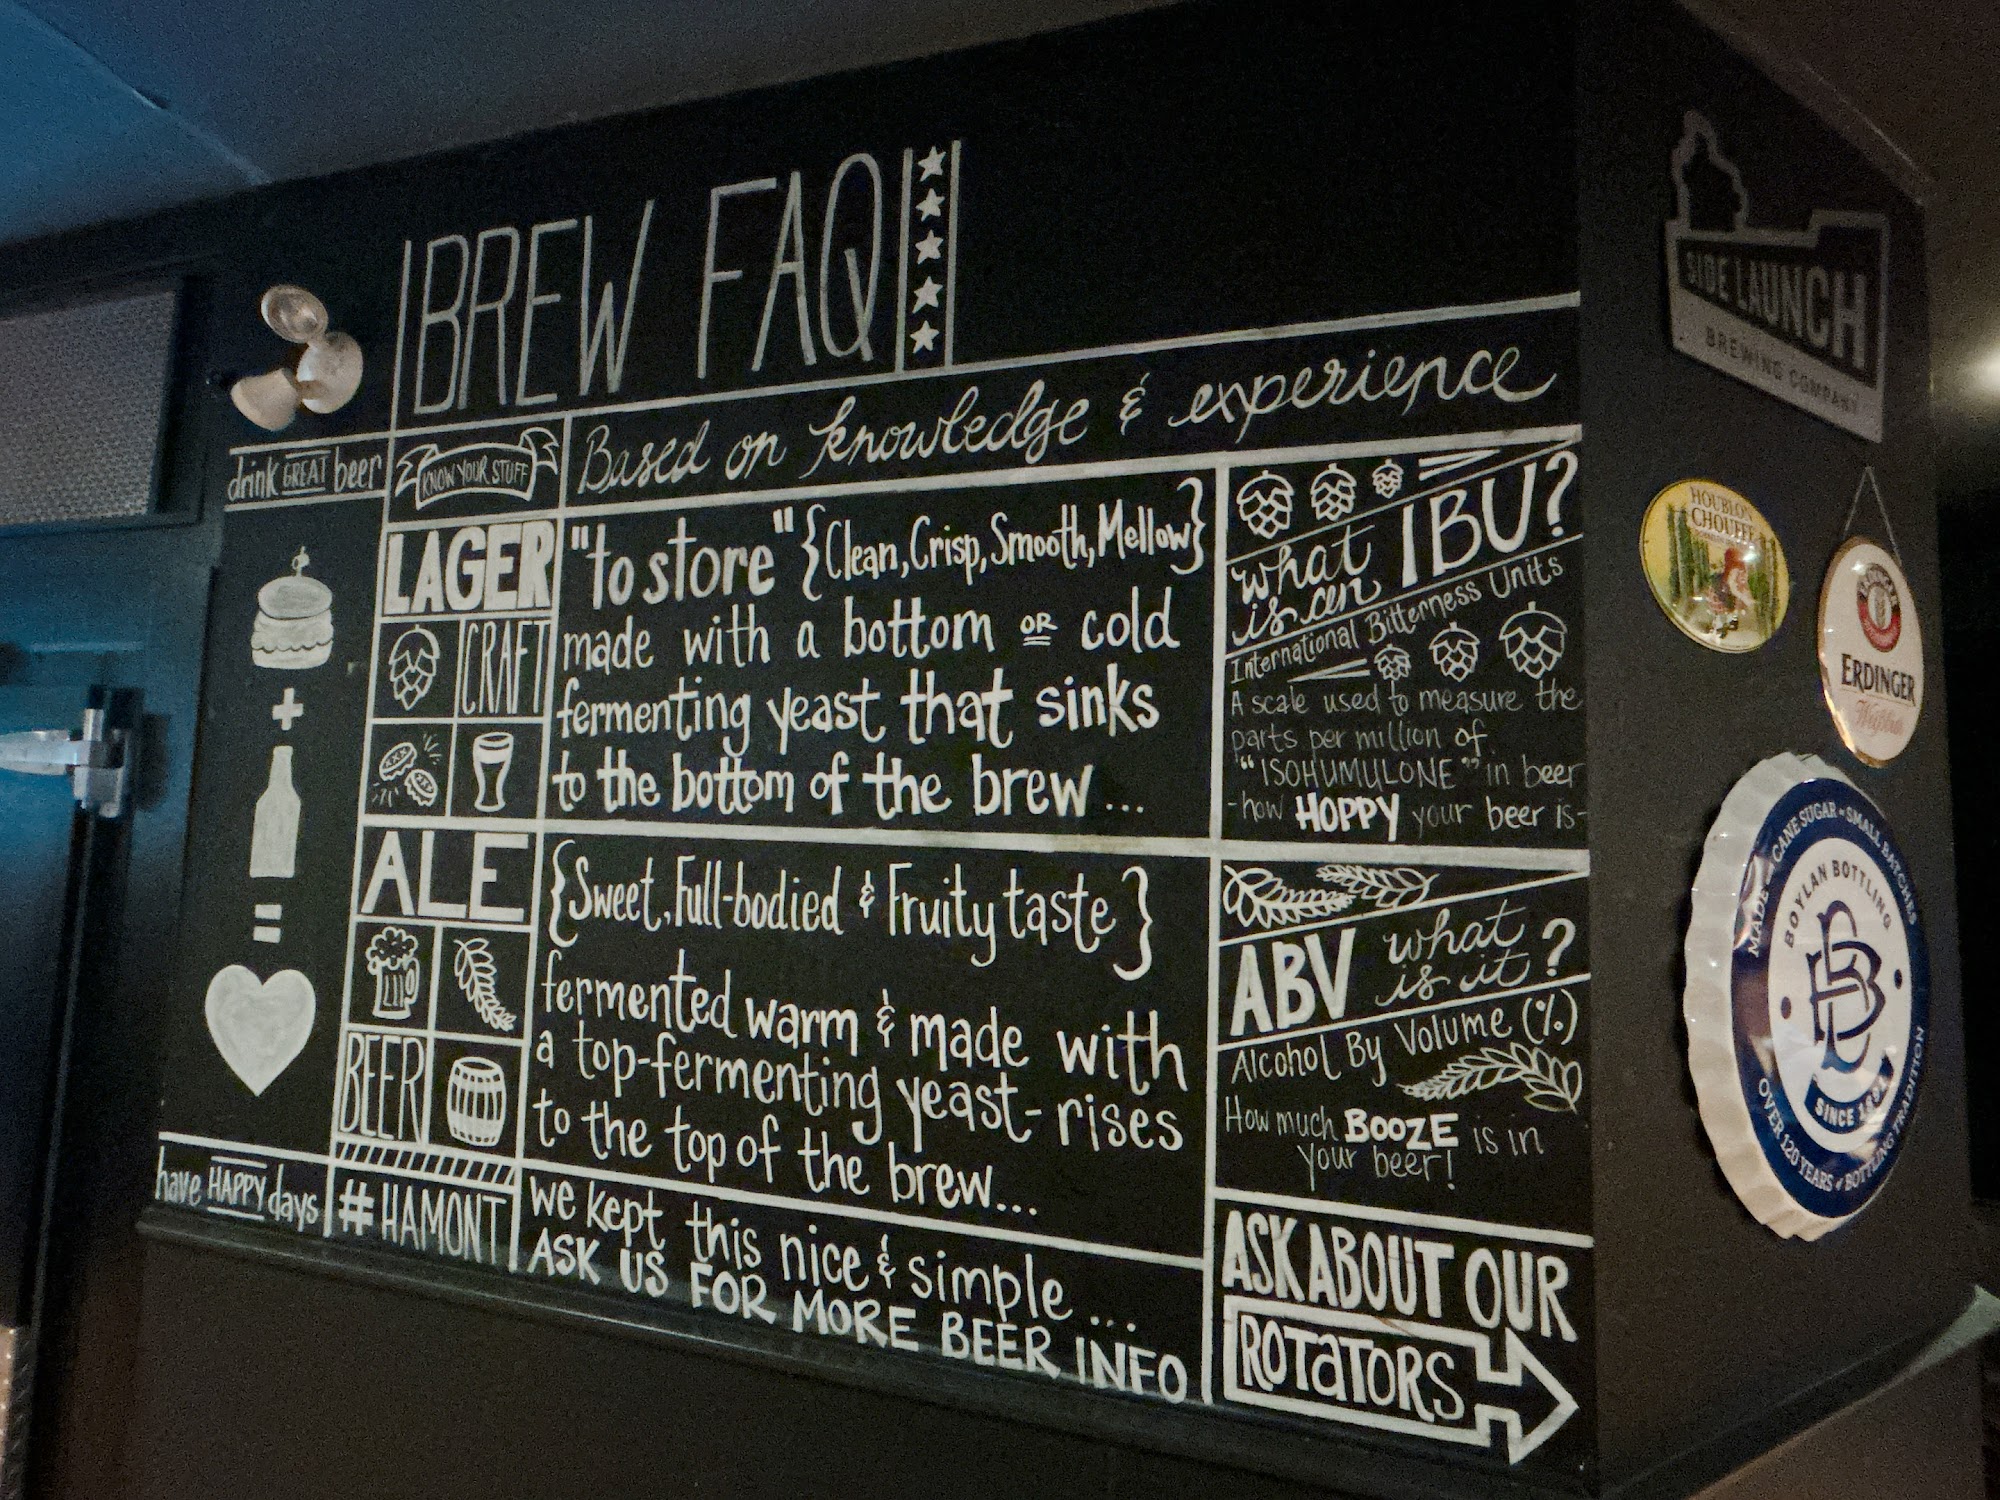 BREW FAQ
Based on knowledge & experience
drink GREAT beer
KNOW YOUR STUFF
LAGER
CRAFT
"to store" {Clean, Crisp, Smooth, Mellow}
made with a bottom OR cold
fermenting yeast that sinks
to the bottom of the brew ...
ALE
BEER
{Sweet, Full-bodied & Fruity taste}
fermented warm & made with
a top-fermenting yeast- rises
to the top of the brew...
have HAPPY days
#HAMONT
we kept this nice & simple ...
ASK US FOR MORE BEER INFO
what
is an IBU?
International Bitterness Units
A scale used to measure the
parts per million of
"ISOHUMULONE" in beer
-how HOPPY your beer is-
ABV what
is it?
Alcohol By Volume (%)
How much BOOZE is in
your beer!
ASK ABOUT OUR
ROTATORS
SIDE LAUNCH
BREWING COMPANY
HOUBLON
CHOUFFE
ERDINGER
Weißbier
MADE CANE SUGAR SMALL BATCHES
BOYLAN BOTTLING
BB
SINCE 1891
OVER 120 YEARS of BOTTLING TRADITION